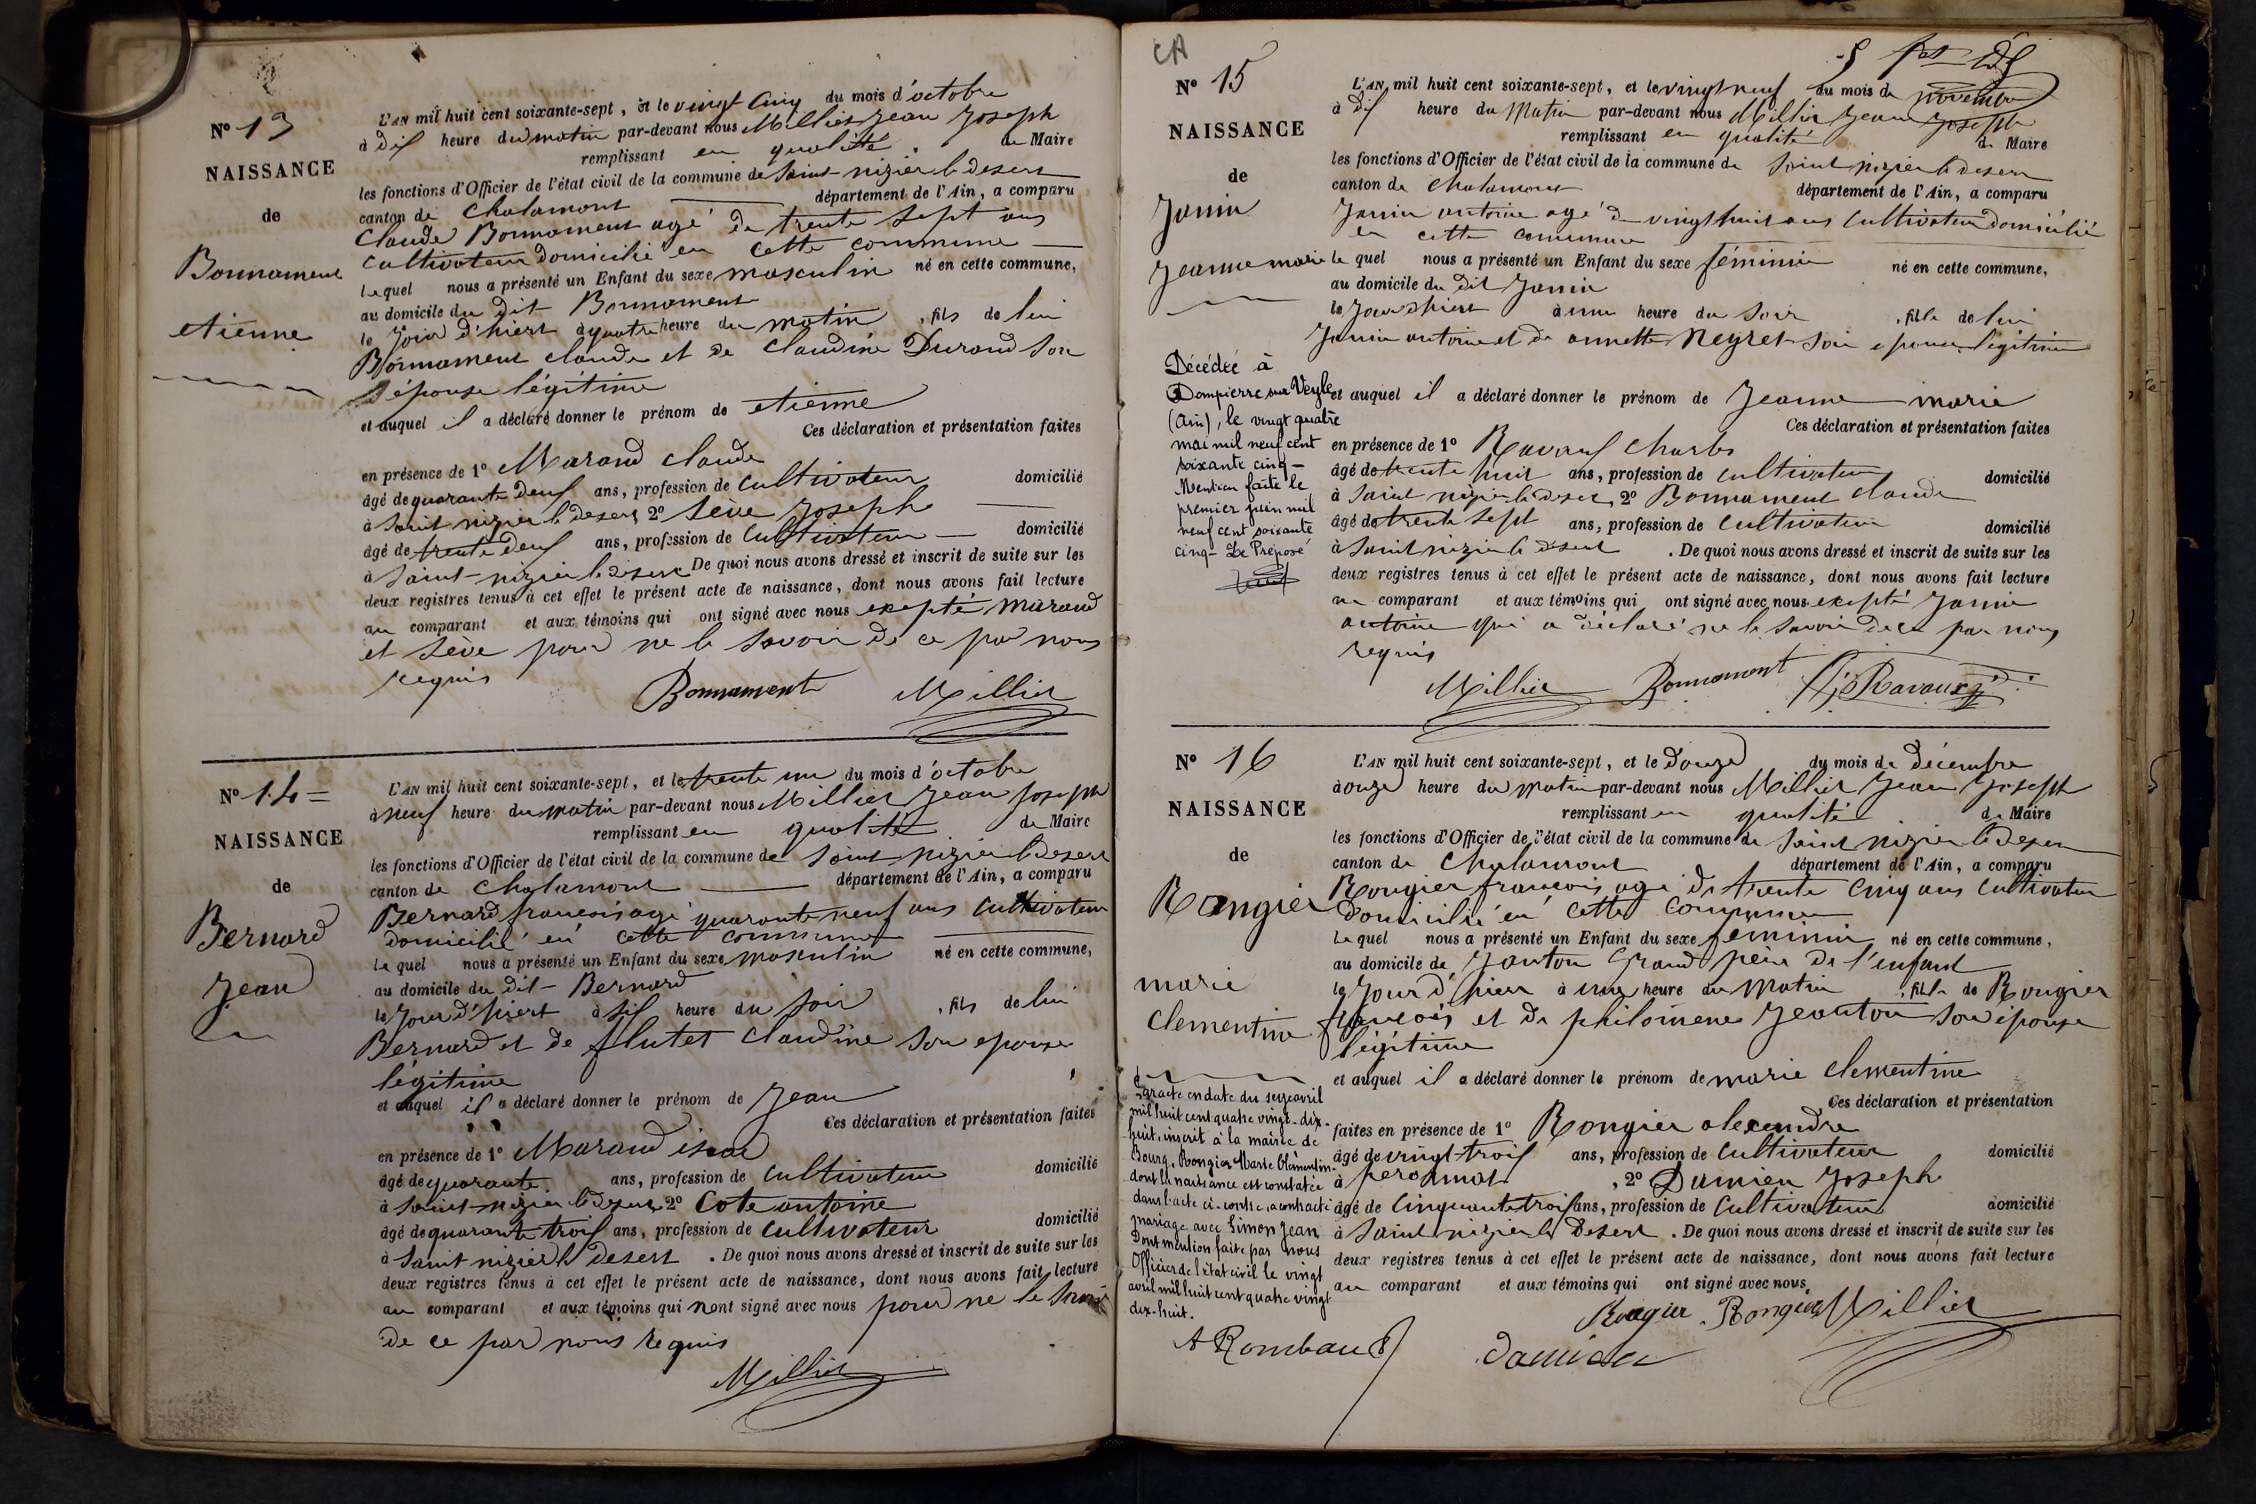 N° 13
NAISSANCE
de
Bonnament
etienne
L'AN mil huit cent soixante-sept, et le vingt cinq du mois d'octobre
à dix heure du matin par-devant nous Millier Jean Joseph
remplissant en qualité de Maire
les fonctions d'Officier de l'état civil de la commune de Saint-nizier le desert
canton de Chalamont département de l'Ain, a comparu
Claude Bonnament agé de trente sept ans
cultivateur domicilié en cette commune
lequel nous a présenté un Enfant du sexe masculin né en cette commune,
au domicile du dit Bonnament
le Jour d'hiert à quatre heure du matin, fils de lui
Bonnament claude et de claudine Durand son
épouse légitime
et auquel il a déclaré donner le prénom de etienne
Ces déclaration et présentation faites
en présence de 1° Marand claude
âgé de quarante deux ans, profession de cultivateur domicilié
à Saint nizier le desert, 2° Sève Joseph
âgé de trente deux ans, profession de cultivateur domicilié
à Saint-nizier le desert De quoi nous avons dressé et inscrit de suite sur les
deux registres tenus à cet effet le présent acte de naissance, dont nous avons fait lecture
au comparant et aux témoins qui ont signé avec nous excepté marand
et Sève pour ne le savoir de ce par nous
requis
Bonnament Millier
N° 14
NAISSANCE
de
Bernard
Jean
L'AN mil huit cent soixante-sept, et le trente un du mois d'octobre
à neuf heure du matin par-devant nous Millier Jean Joseph
remplissant en qualité de Maire
les fonctions d'Officier de l'état civil de la commune de Saint nizier le desert
canton de Chalamont département de l'Ain, a comparu
Bernard francois agé quarante neuf ans cultivateur
domicilié en cette commune
lequel nous a présenté un Enfant du sexe masculin né en cette commune,
au domicile du dit Bernard
le Jour d'hiert à six heure du soir, fils de lui
Bernard et de flutet Claudine son epouse
légitime
et auquel il a déclaré donner le prénom de Jean
Ces déclaration et présentation faites
en présence de 1° Marand
âgé de quarante ans, profession de cultivateur domicilié
à Saint-nizier le desert, 2° Cote antoine
âgé de quarante trois ans, profession de cultivateur domicilié
à Saint nizier le desert. De quoi nous avons dressé et inscrit de suite sur les
deux registres tenus à cet effet le présent acte de naissance, dont nous avons fait lecture
au comparant et aux témoins qui nont signé avec nous pour ne le savoir
de ce par nous requis
Millier
CA
N° 15
NAISSANCE
de
Janin
Jeanne marie
Décédée à
Dompierre sur Veyle
(Ain), le vingt quatre
mai mil neuf cent
soixante cinq -
Mention faite le
premier juin mil
neuf cent soixante
cinq - Le Préposé
L'AN mil huit cent soixante-sept, et le vingt neuf du mois de novembre
à dix heure du Matin par-devant nous Millier Jean Joseph
remplissant en qualité de Maire
les fonctions d'Officier de l'état civil de la commune de Saint nizier le desert
canton de Chalamont département de l'Ain, a comparu
Janin antoine agé de vingt huit ans cultivateur domicilié
en cette commune
lequel nous a présenté un Enfant du sexe féminin né en cette commune,
au domicile du dit Janin
le Jour d'hiert à une heure du Soir, fille de lui
Janin antoine et de annette Neyret son epouse légitime
et auquel il a déclaré donner le prénom de Jeanne marie
Ces déclaration et présentation faites
en présence de 1° Ravaux Charles
âgé de trente huit ans, profession de cultivateur domicilié
à Saint nizier le desert, 2° Bonnament claude
âgé de trente sept ans, profession de cultivateur domicilié
à Saint nizier le desert. De quoi nous avons dressé et inscrit de suite sur les
deux registres tenus à cet effet le présent acte de naissance, dont nous avons fait lecture
au comparant et aux témoins qui ont signé avec nous excepté Janin
antoine qui a déclaré ne le savoir de ce par nous
requis
Millier Bonnament Ravaux
N° 16
NAISSANCE
de
Rongier
marie
clementine
Par acte en date du seize avril
mil huit cent quatre vingt-dix-
huit, inscrit à la mairie de
Bourg, Rongier Marie Clémentine
dont la naissance est constatée
dans l'acte ci-contre, a contracté
mariage avec Simon Jean
Dont mention faite par nous
Officier de l'état civil le vingt
avril mil huit cent quatre vingt
dix-huit.
A Rombaud
L'AN mil huit cent soixante-sept, et le Douze du mois de décembre
à onze heure du matin par-devant nous Millier Jean Joseph
remplissant en qualité de Maire
les fonctions d'Officier de l'état civil de la commune de Saint nizier le desert
canton de Chalamont département de l'Ain, a comparu
Rongier francois agé de trente cinq ans cultivateur
domicilié en cette commune
lequel nous a présenté un Enfant du sexe féminin né en cette commune,
au domicile de Janton Grand père de l'enfant
le Jour d'hier à une heure du matin, fille de Rongier
francois et de philomene Jeanton son épouse
légitime
et auquel il a déclaré donner le prénom de marie clementine
Ces déclaration et présentation
faites en présence de 1° Rongier alexandre
âgé de vingt-trois ans, profession de Cultivateur domicilié
à peronnas, 2° Damien Joseph
âgé de Cinquante trois ans, profession de Cultivateur domicilié
à Saint nizier le Desert. De quoi nous avons dressé et inscrit de suite sur les
deux registres tenus à cet effet le présent acte de naissance, dont nous avons fait lecture
au comparant et aux témoins qui ont signé avec nous
Rongier Rongier Millier
Damien